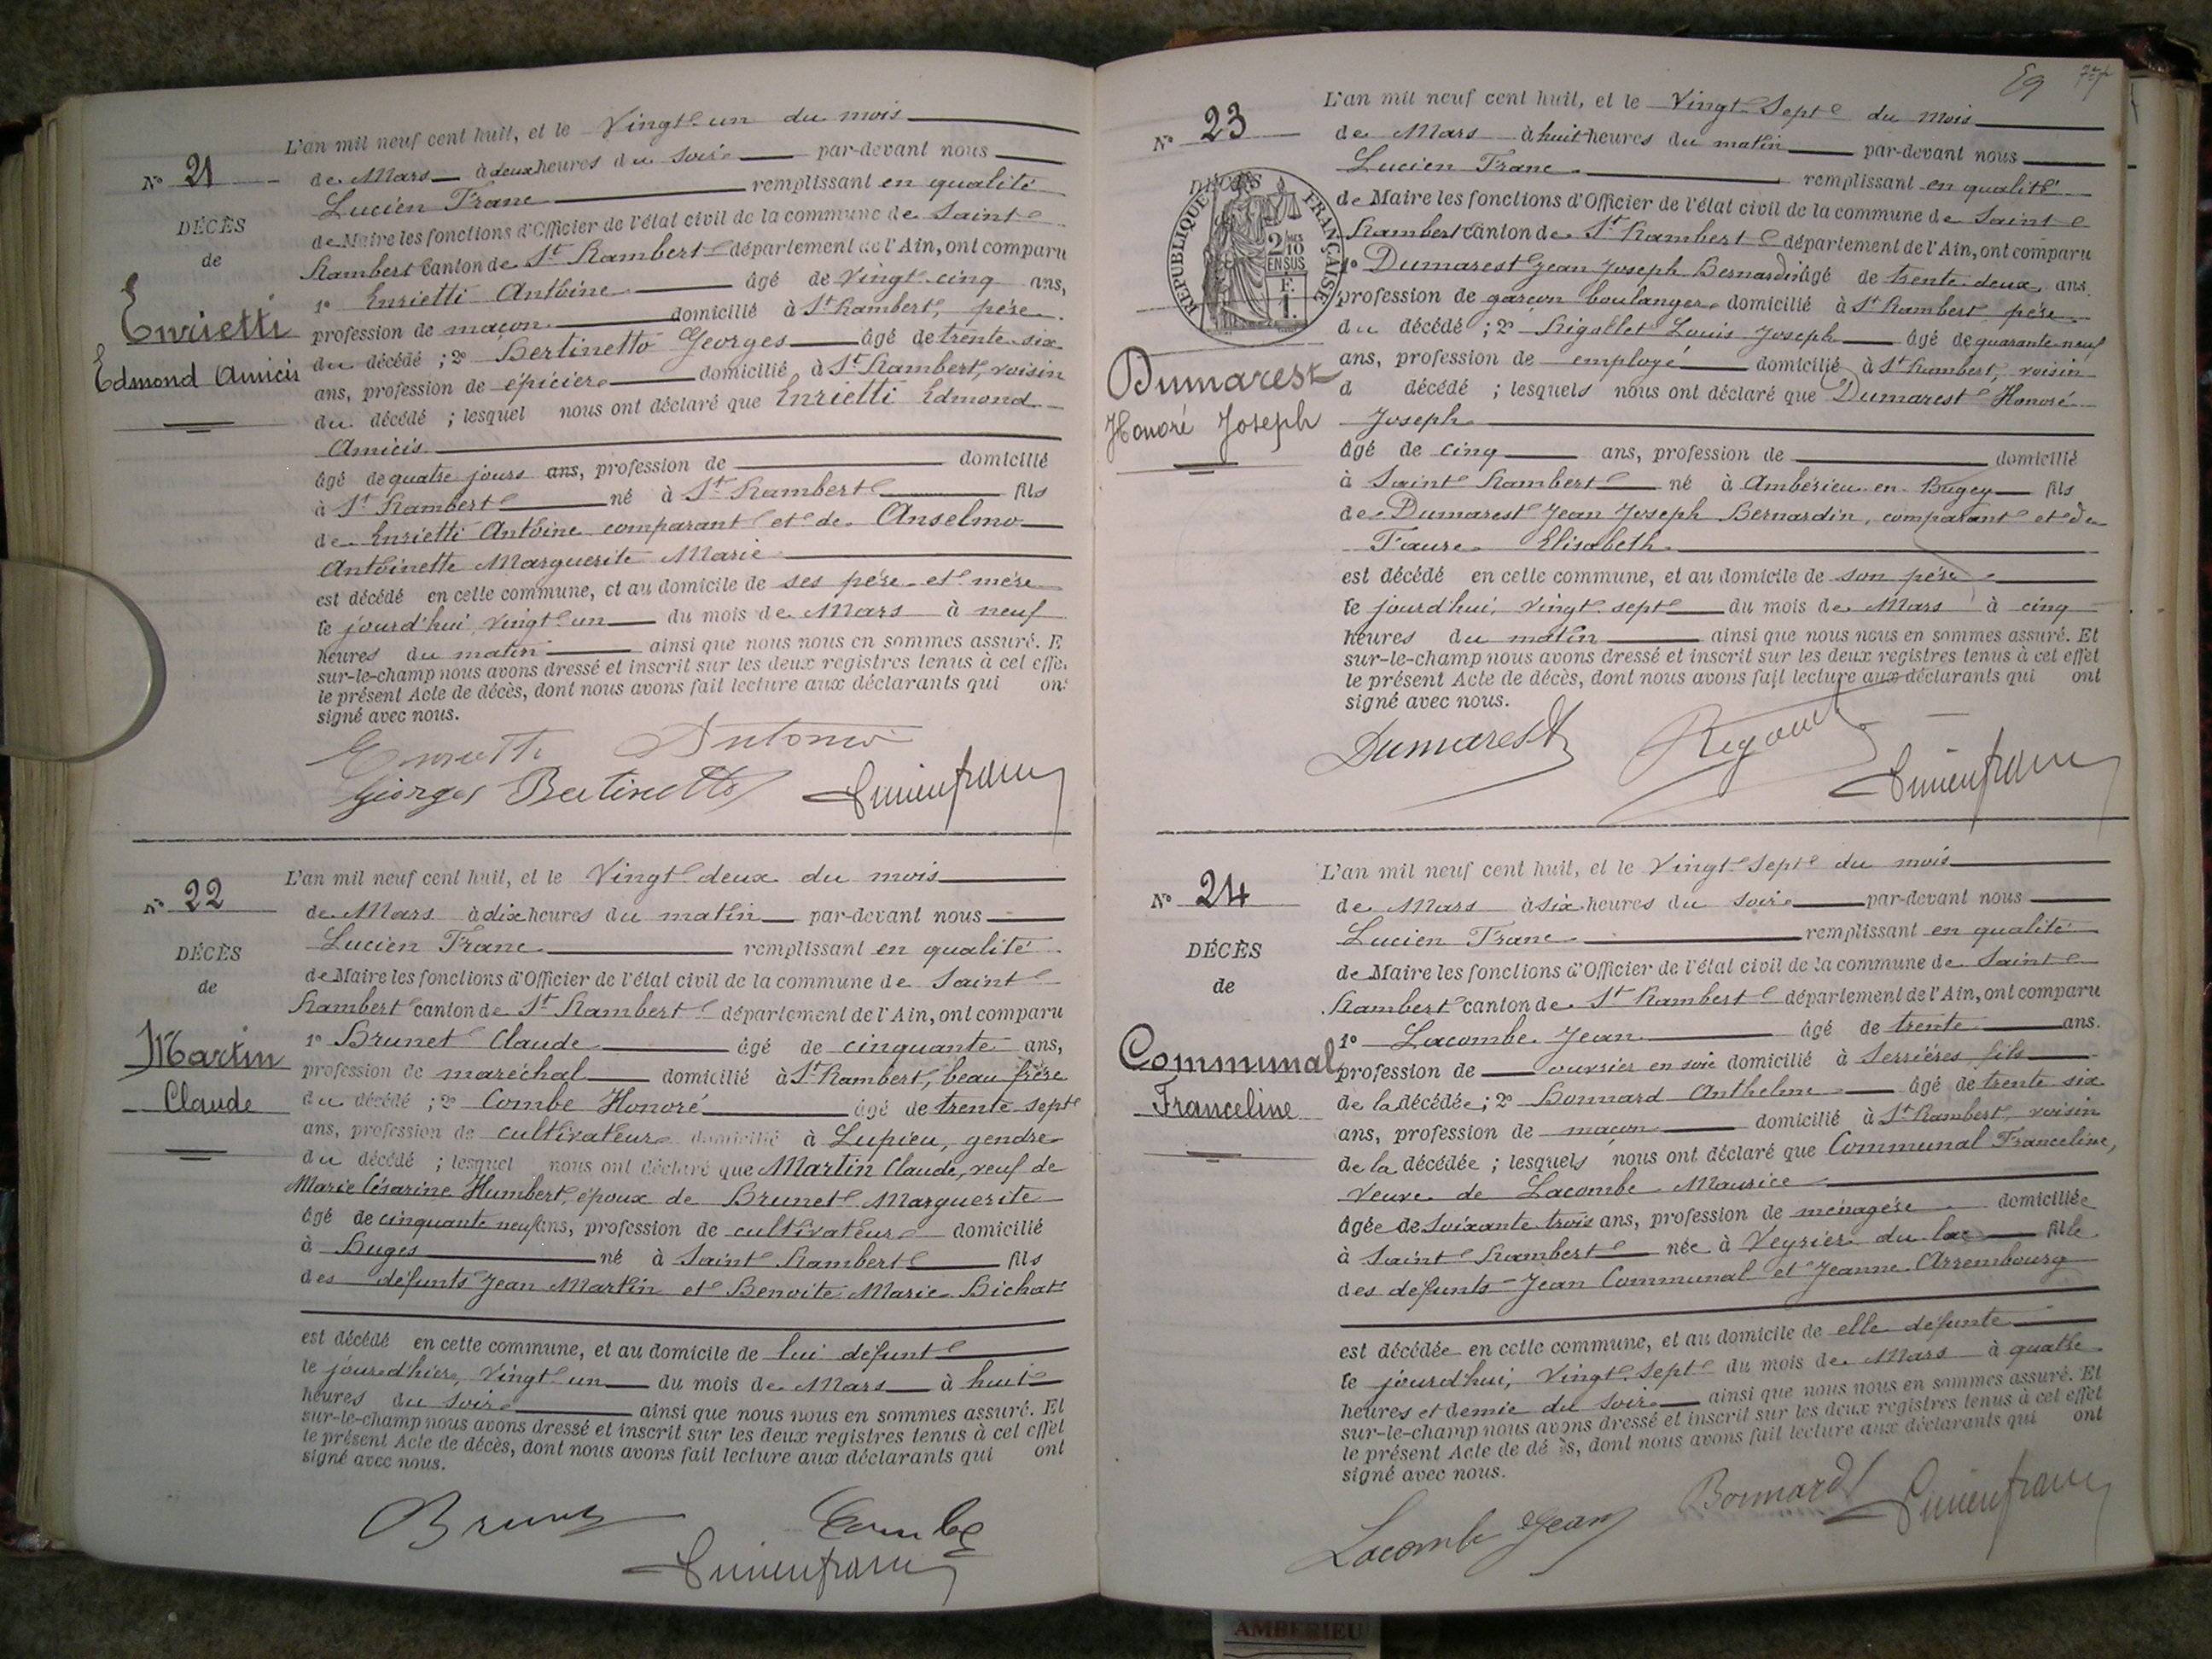 L'an mil neuf cent huit, et le Vingt un du mois
N° 21
de Mars à deux heures du soir par-devant nous
Lucien Franc remplissant en qualité
DÉCÈS
de Maire les fonctions d'Officier de l'état civil de la commune de Saint
de
Rambert canton de St Rambert département de l'Ain, ont comparu
1° Enrietti Antoine âgé de vingt cinq ans,
Enrietti
profession de maçon domicilié à St Rambert, père
Edmond Amicis
du décédé ; 2° Bertinetto Georges âgé de trente six
ans, profession de épicier domicilié à St Rambert, voisin
du décédé ; lesquel nous ont déclaré que Enrietti Edmond
Amicis
âgé de quatre jours ans, profession de domicilié
à St Rambert né à St Rambert fils
de Enrietti Antoine comparant et de Anselmo
Antoinette Marguerite Marie
est décédé en cette commune, et au domicile de ses père et mère
le jourd'hui, vingt un du mois de Mars à neuf
heures du matin ainsi que nous nous en sommes assuré. E
sur-le-champ nous avons dressé et inscrit sur les deux registres tenus à cel effe
le présent Acte de décès, dont nous avons fait lecture aux déclarants qui on
signé avec nous.
Enrietti Antonio
Giorges Bertinetto Lucien franc
L'an mil neuf cent huit, et le Vingt deux du mois
N° 22
de Mars à dix heures du matin par-devant nous
Lucien Franc remplissant en qualité
DÉCÈS
de Maire les fonctions d'Officier de l'état civil de la commune de Saint
de
Rambert canton de St Rambert département de l'Ain, ont comparu
1° Brunet Claude âgé de cinquante ans,
Martin
profession de maréchal domicilié à St Rambert, beau frère
Claude
du décédé ; 2° Combe Honoré âgé de trente sept
ans, profession de cultivateur domicilié à Lupieu, gendre
du décédé ; lesquel nous ont déclaré que Martin Claude, veuf de
Marie Césarine Humbert, époux de Brunet Marguerite
âgé de cinquante neuf ans, profession de cultivateur domicilié
à Buges né à Saint Rambert fils
des défunts Jean Martin et Benoite Marie Bichat
est décédé en cette commune, et au domicile de lui défunt
le jour d'hier, vingt un du mois de Mars à huit
heures du soir ainsi que nous nous en sommes assuré. Et
sur-le-champ nous avons dressé et inscrit sur les deux registres tenus à cel effet
le présent Acte de décès, dont nous avons fait lecture aux déclarants qui ont
signé avec nous.
Brunet Combe
Lucien franc
59
L'an mil neuf cent huit, et le Vingt Sept du mois
N° 23
de Mars à huit heures du matin par-devant nous
Lucien Franc remplissant en qualité
DÉCÈS
RÉPUBLIQUE FRANÇAISE
2/10 EN SUS
F. 1.
de Maire les fonctions d'Officier de l'état civil de la commune de Saint
Rambert canton de St Rambert département de l'Ain, ont comparu
1° Dumarest Jean Joseph Bernardin âgé de trente deux ans.
profession de garçon boulanger domicilié à St Rambert père
du décédé ; 2° Rigollet Louis Joseph âgé de quarante neuf
Dumarest
ans, profession de employé domicilié à St Rambert, voisin
d décédé ; lesquels nous ont déclaré que Dumarest Honoré
Honoré Joseph
Joseph
âgé de cinq ans, profession de domicilié
à Saint Rambert né à Ambérieu en Bugey fils
de Dumarest Jean Joseph Bernardin, comparant et de
Faure Elisabeth
est décédé en cette commune, et au domicile de son père
le jourd'hui, vingt sept du mois de Mars à cinq
heures du matin ainsi que nous nous en sommes assuré. Et
sur-le-champ nous avons dressé et inscrit sur les deux registres tenus à cet effet
le présent Acte de décès, dont nous avons fait lecture aux déclarants qui ont
signé avec nous.
Dumarest
Lucien franc
L'an mil neuf cent huit, et le Vingt Sept du mois
N° 24
de Mars à six heures du soir par-devant nous
Lucien Franc remplissant en qualité
DÉCÈS
de Maire les fonctions d'Officier de l'état civil de la commune de Saint
de
Rambert canton de St Rambert département de l'Ain, ont comparu
1° Lacombe Jean âgé de trente ans.
Communal
profession de ouvrier en soie domicilié à Serrières fils
Franceline
de la décédée ; 2° Bonnard Anthelme âgé de trente six
ans, profession de maçon domicilié à St Rambert, voisin
de la décédée ; lesquels nous ont déclaré que Communal Franceline,
veuve de Lacombe Maurice
âgée de soixante trois ans, profession de ménagère domiciliée
à Saint Rambert née à Veyrier du lac fille
des défunts Jean Communal et Jeanne Arrembourg
est décédée en cette commune, et au domicile de elle défunte
le jourd'hui, Vingt Sept du mois de Mars à quatre
heures et demie du soir ainsi que nous nous en sommes assuré. Et
sur-le-champ nous avons dressé et inscrit sur les deux registres tenus à cel effet
le présent Acte de dé ès, dont nous avons fait lecture aux déclarants qui ont
signé avec nous.
Lacombe Jean Bonnard Lucien franc
AMBERIEU